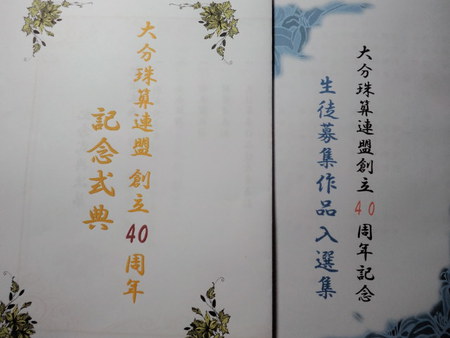 大分珠算連盟創立40周年
記念式典
大分珠算連盟創立40周年記念
生徒募集作品入選集